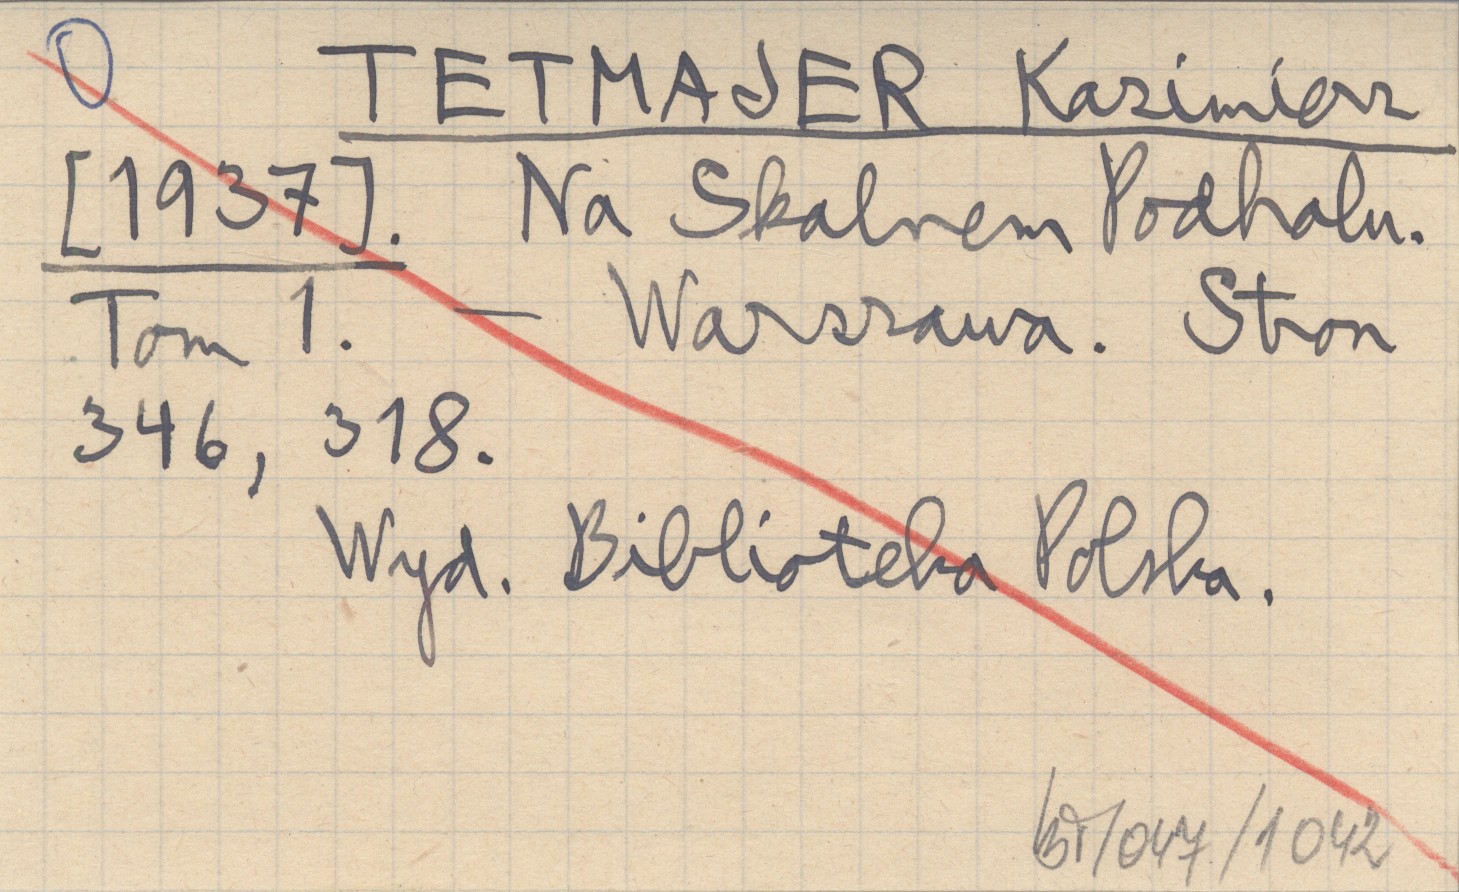 O TETMAJER Kazimierz
[1937]. Na Skalnem Podhalu.
Tom 1. — Warszawa. Stron
346, 318.
Wyd. Biblioteka Polska.
/047/1042